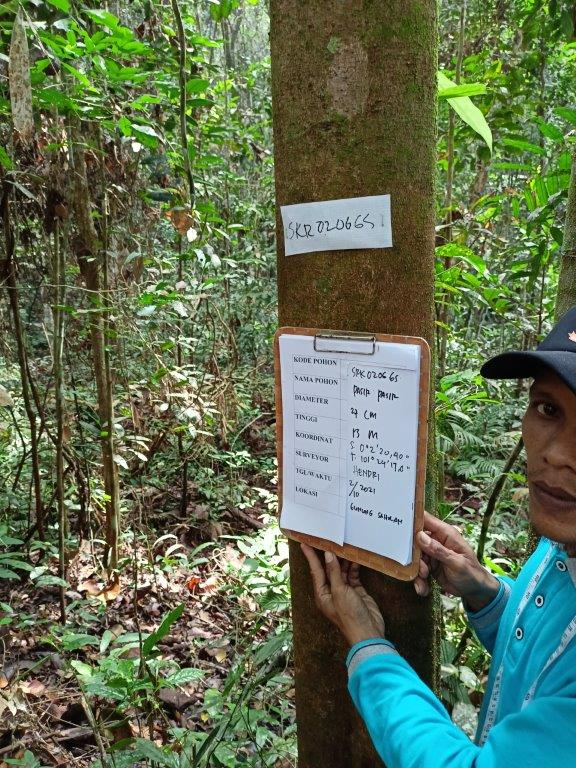 SKR020665
KODE POHON SRK020665
NAMA POHON PASIR PASIR
DIAMETER 27 CM
TINGGI 13 M
KOORDINAT S 0°2'20,40"
T 101°24'17,0"
SURVEYOR HENDRI
TGL/WAKTU 2/2021
/10
LOKASI GUNUNG SAHILAN